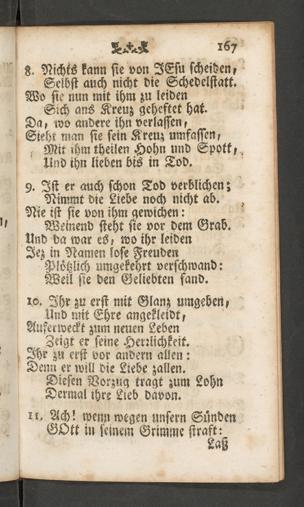 167
8. Nichts kann sie von JEsu scheiden,
Selbst auch nicht die Schedelstatt.
Wo sie nun mit ihm zu leiden
Sich ans Kreuz geheftet hat.
Da, wo andere ihn verlassen,
Sieht man sie sein Kreuz umfassen,
Mit ihm theilen Hohn und Spott,
Und ihn lieben bis in Tod.
9. Ist er auch schon Tod verblichen;
Nimmt die Liebe noch nicht ab.
Nie ist sie von ihm gewichen:
Weinend steht sie vor dem Grab.
Und da war es, wo ihr leiden
Jez in Namen lose Freuden
Plötzlich umgekehrt verschwand:
Weil sie den Geliebten fand.
10. Ihr zu erst mit Glanz umgeben,
Und mit Ehre angekleidt,
Auferweckt zum neuen Leben
Zeigt er seine Herrlichkeit.
Ihr zu erst vor andern allen:
Denn er will die Liebe zallen.
Diesen Vorzug tragt zum Lohn
Dermal ihre Lieb davon.
11. Ach! wenn wegen unsern Sünden
GOtt in seinem Grimme straft:
Laß